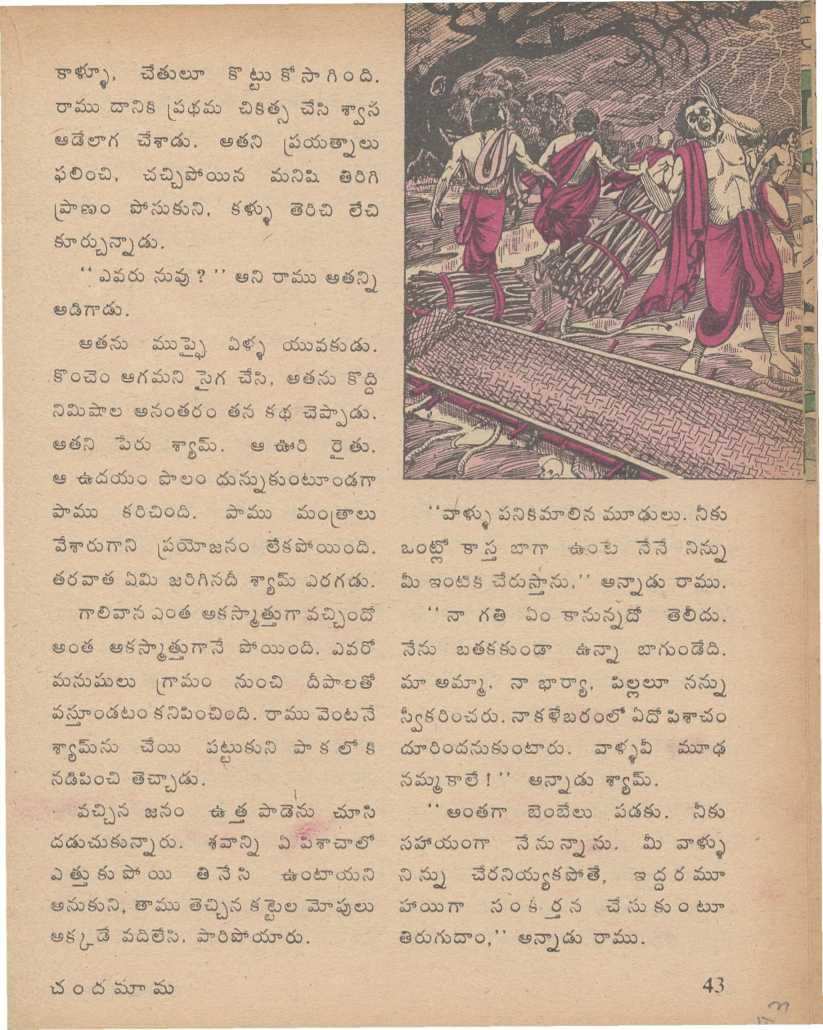 కాళ్ళూ, చేతులూ కొట్టుకోసాగింది.
రాము దానికి ప్రథమ చికిత్స చేసి శ్వాస
ఆడేలాగ చేశాడు. అతని ప్రయత్నాలు
ఫలించి, చచ్చిపోయిన మనిషి తిరిగి
ప్రాణం పోసుకుని, కళ్ళు తెరిచి లేచి
కూర్చున్నాడు.
‘‘ఎవరు నువు?’’ అని రాము అతన్ని
అడిగాడు.
అతను ముప్ఫై ఏళ్ళ యువకుడు.
కొంచెం ఆగమని సైగ చేసి, అతను కొద్ది
నిమిషాల అనంతరం తన కథ చెప్పాడు.
అతని పేరు శ్యామ్. ఆ ఊరి రైతు.
ఆ ఉదయం పొలం దున్నుకుంటూండగా
పాము కరిచింది. పాము మంత్రాలు
వేశారుగాని ప్రయోజనం లేకపోయింది.
తరవాత ఏమి జరిగినదీ శ్యామ్ ఎరగడు.
గాలివాన ఎంత అకస్మాత్తుగా వచ్చిందో
అంత అకస్మాత్తుగానే పోయింది. ఎవరో
మనుషులు గ్రామం నుంచి దీపాలతో
వస్తూండటం కనిపించింది. రాము వెంటనే
శ్యామ్‌ను చేయి పట్టుకుని పాకలోకి
నడిపించి తెచ్చాడు.
వచ్చిన జనం ఉత్త పాడెను చూసి
దడుచుకున్నారు. శవాన్ని ఏ పిశాచాలో
ఎత్తుకుపోయి తినేసి ఉంటాయని
అనుకుని, తాము తెచ్చిన కట్టెల మోపులు
అక్కడే వదిలేసి, పారిపోయారు.
‘‘వాళ్ళు పనికిమాలిన మూఢులు. నీకు
ఒంట్లో కాస్త బాగా ఉంటే నేనే నిన్ను
మీ ఇంటికి చేరుస్తాను,’’ అన్నాడు రాము.
‘‘నా గతి ఏం కానున్నదో తెలీదు.
నేను బతకకుండా ఉన్నా బాగుండేది.
మా అమ్మా, నా భార్యా, పిల్లలూ నన్ను
స్వీకరించరు. నాకళేబరంలో ఏదో పిశాచం
దూరిందనుకుంటారు. వాళ్ళవి మూఢ
నమ్మకాలే!’’ అన్నాడు శ్యామ్.
‘‘అంతగా బెంబేలు పడకు. నీకు
సహాయంగా నేనున్నాను. మీ వాళ్ళు
నిన్ను చేరనియ్యకపోతే, ఇద్దరమూ
హాయిగా సంకీర్తన చేసుకుంటూ
తిరుగుదాం,’’ అన్నాడు రాము.
చందమామ
43